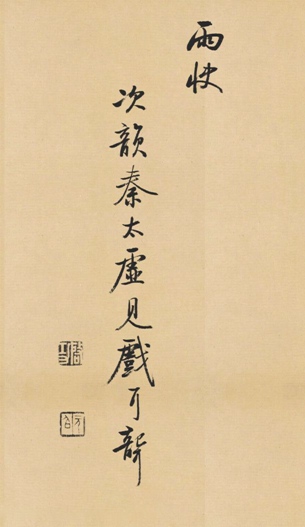 雨快
次韻秦太虛見戲耳聾